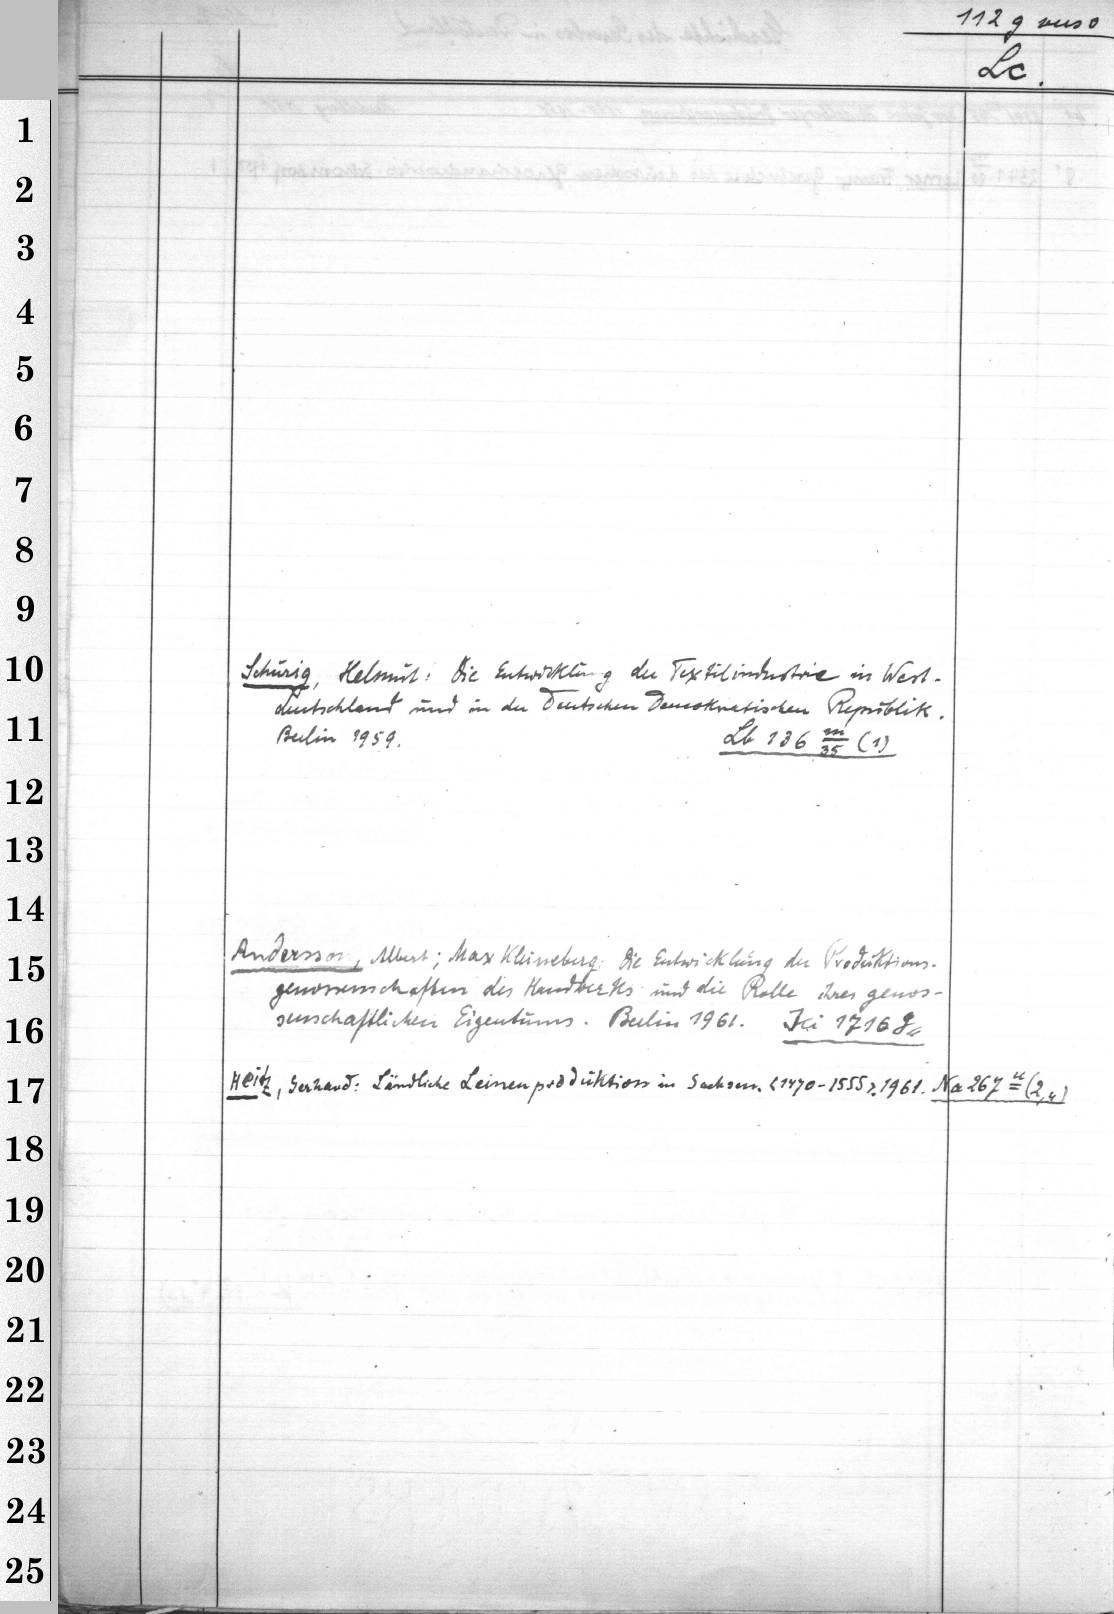 112 g verso
Lc.
1
2
3
4
5
6
7
8
9
10
Schurig, Helmut: Die Entwicklung der Textilindustrie in West-
deutschland und in der Deutschen Demokratischen Republik.
11
Berlin 1959. Lb 186 m/35 (1)
12
13
14
15
Andersson, Albert; Max Klinneberg: Die Entwicklung der Produktions-
genossenschaften des Handwerks und die Rolle ihres genos-
16
senschaftlichen Eigentums. Berlin 1961. Ki 1716
17
Heitz, Gerhard: Ländliche Leinenproduktion in Sachsen. <1470-1555>. 1961. Na 267 (2,4)
18
19
20
21
22
23
24
25